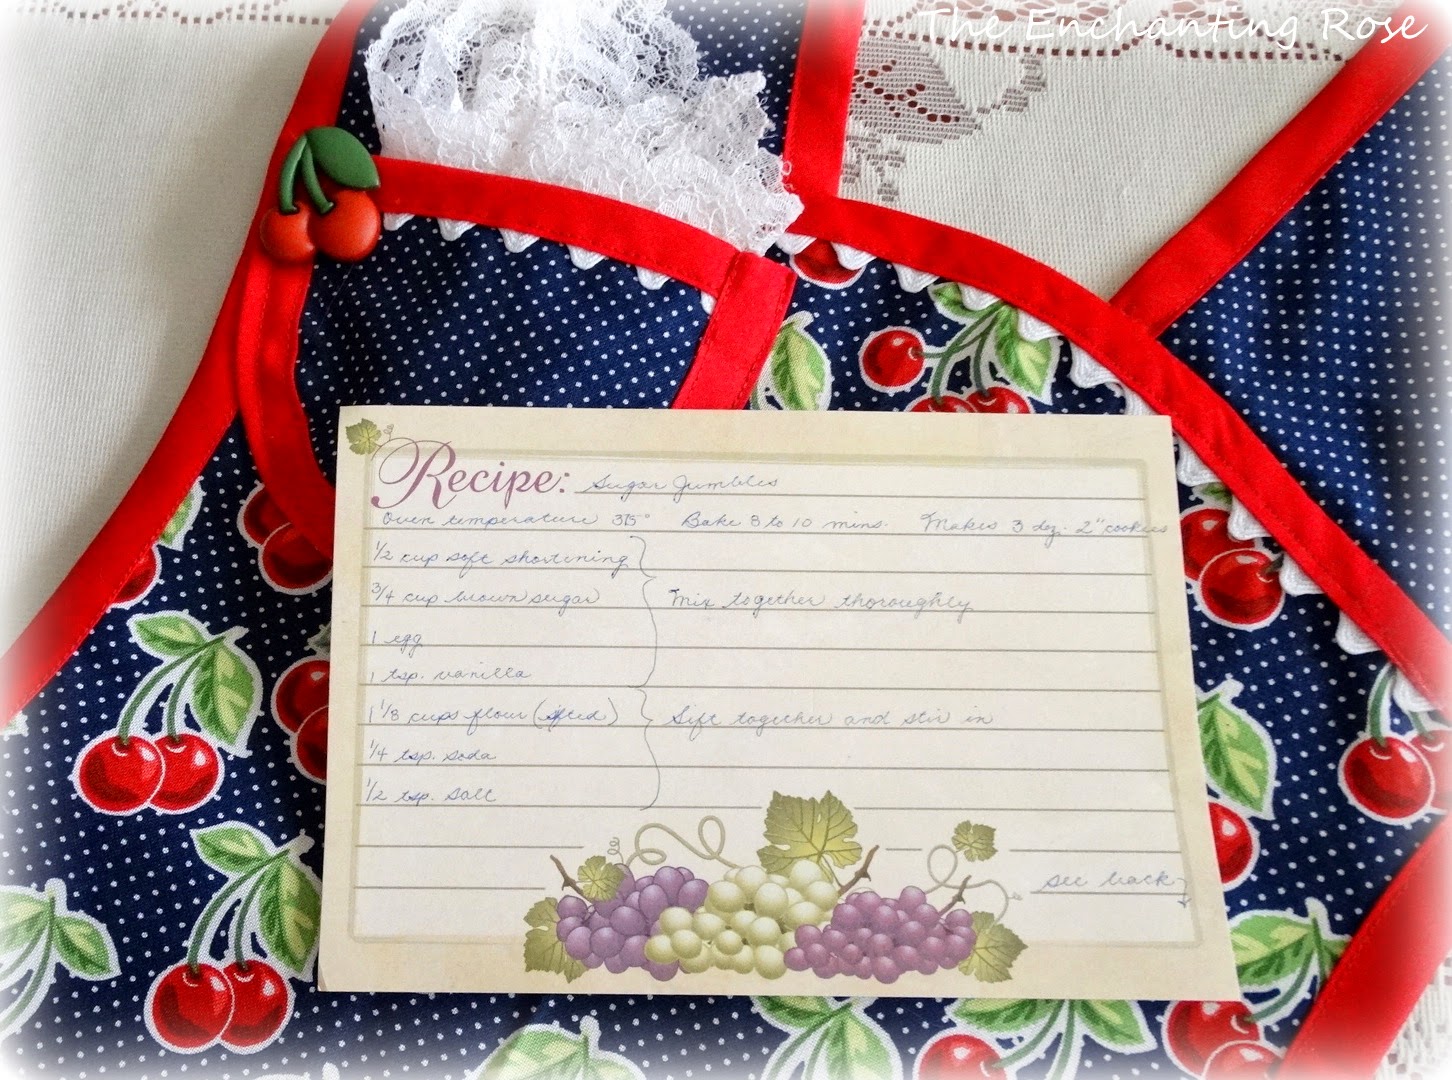 The Enchanting Rose
Recipe: Sugar Jumbles
Oven temperature 375° Bake 8 to 10 mins. Makes 3 doz. 2" cookies
1/2 cup soft shortening
3/4 cup brown sugar Mix together thoroughly
1 egg
1 tsp. vanilla
1 1/8 cups flour (sifted) Sift together and stir in
1/4 tsp. soda
1/2 tsp. salt
see back